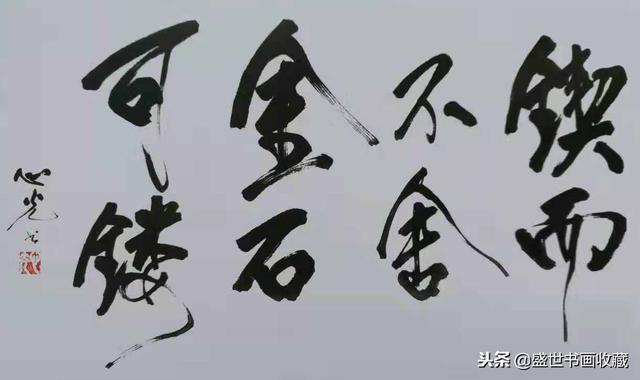 锲而
不舍
金石
可镂
心光书
头条@盛世书画收藏